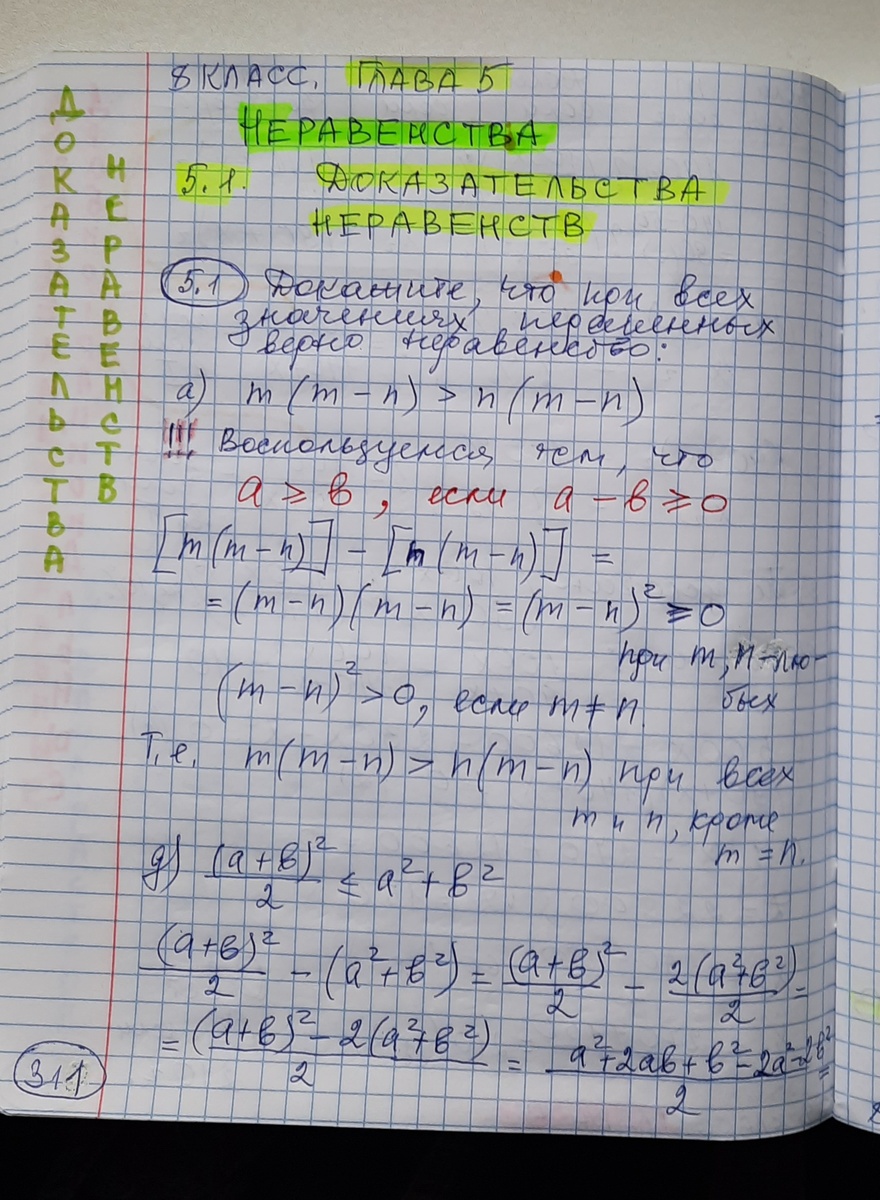 ДОКАЗАТЕЛЬСТВА
НЕРАВЕНСТВ
8 КЛАСС. ГЛАВА 5
НЕРАВЕНСТВА
5.1. ДОКАЗАТЕЛЬСТВА
НЕРАВЕНСТВ
5.1 Докажите, что при всех
значениях переменных
верно неравенство:
а) m(m-n) > n(m-n)
!!! Воспользуемся тем, что
a ≥ b, если a - b ≥ 0
[m(m-n)] - [n(m-n)] =
= (m-n)(m-n) = (m-n)² ≥ 0
при m, n - лю-
бых
(m-n)² > 0, если m ≠ n.
Т.е. m(m-n) > n(m-n) при всех
m и n, кроме
m = n.
д) (a+b)²/2 ≤ a² + b²
(a+b)²/2 - (a²+b²) = (a+b)²/2 - 2(a²+b²)/2 =
= (a+b)² - 2(a²+b²)/2 = a²+2ab+b²-2a²-2b²/2 =
311